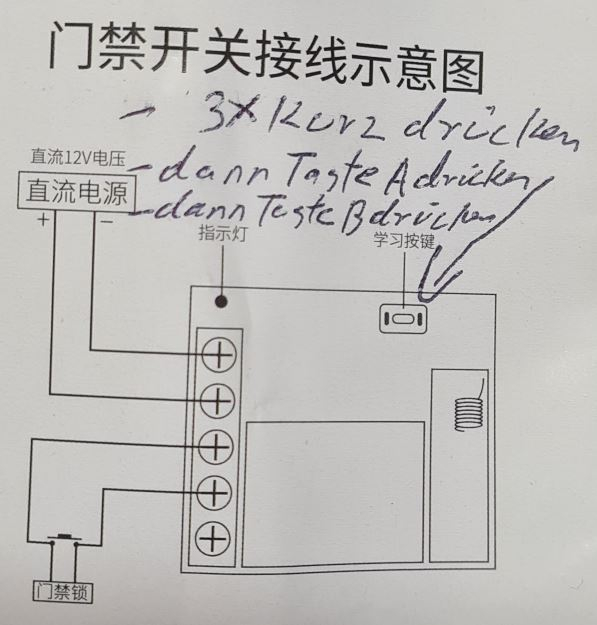 门禁开关接线示意图
- 3x Kurz drücken
直流12V电压
- dann Taste A drücken
直流电源
- dann Taste B drücken
+ −
指示灯
学习按键
门禁锁